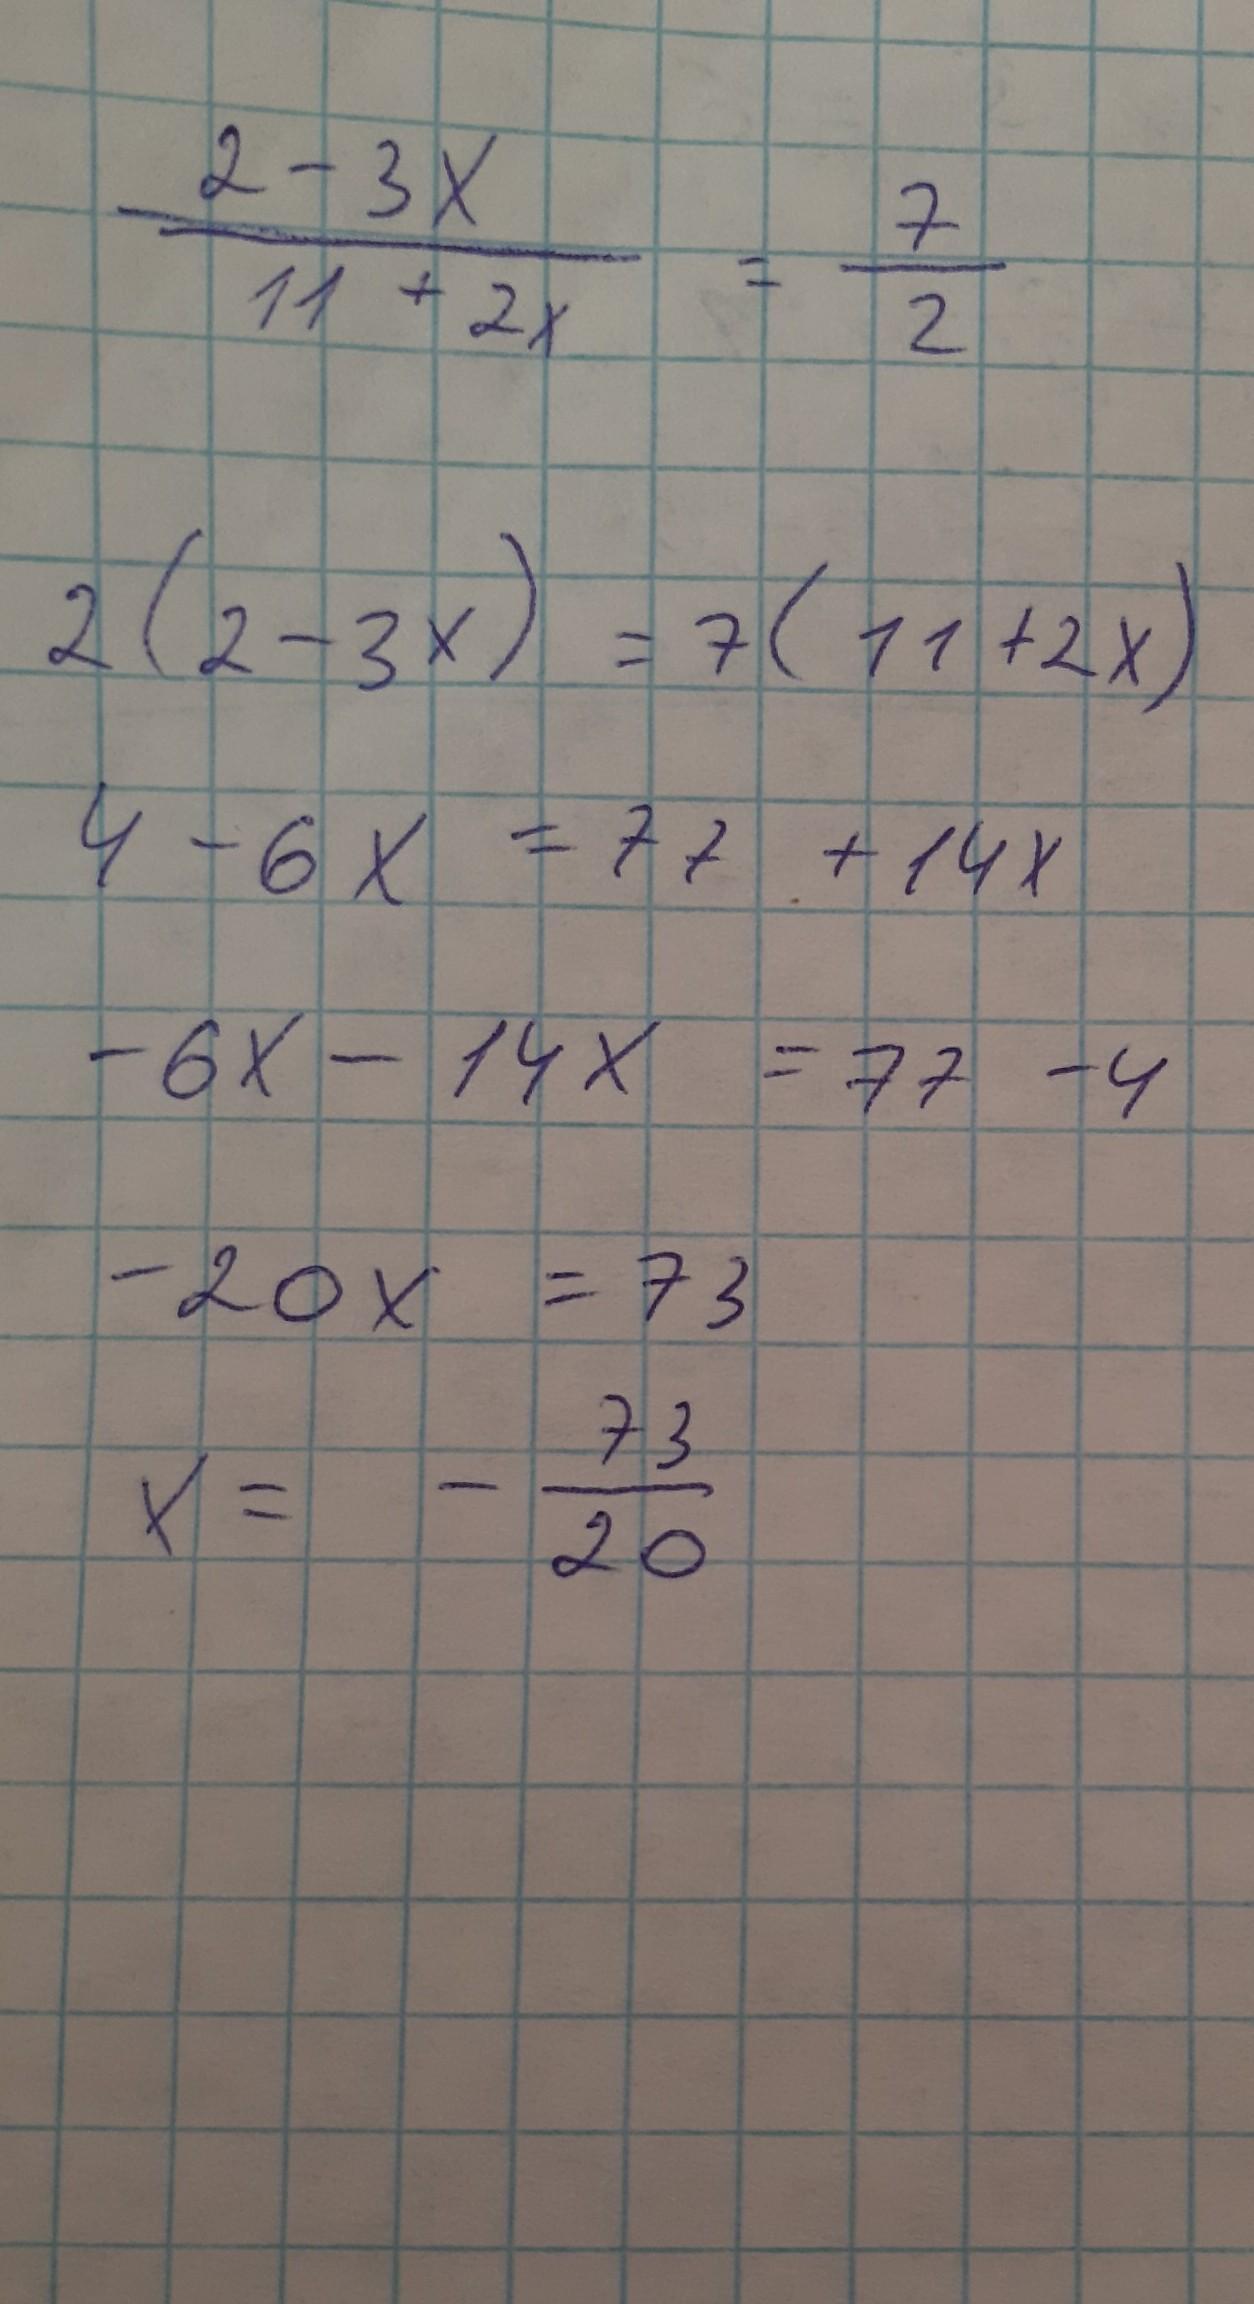 2 - 3x / 11 + 2x = 7 / 2
2 (2 - 3x) = 7 (11 + 2x)
4 - 6x = 77 + 14x
- 6x - 14x = 77 - 4
- 20x = 73
x = - 73 / 20